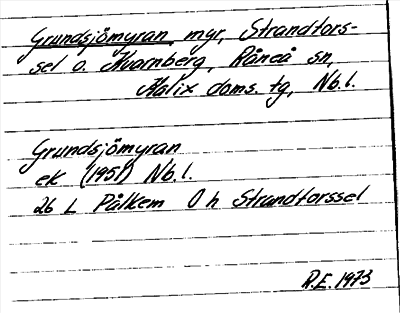 Grundsjömyran mgr, Strandfors-
sel o. Kvarnberg, Råneå sn,
Kalix doms. tg, Nb. l.
Grundsjömyran
ek (1951) Nb. l.
26 L Pålkem 0 h Strandforssel
R.E. 1973